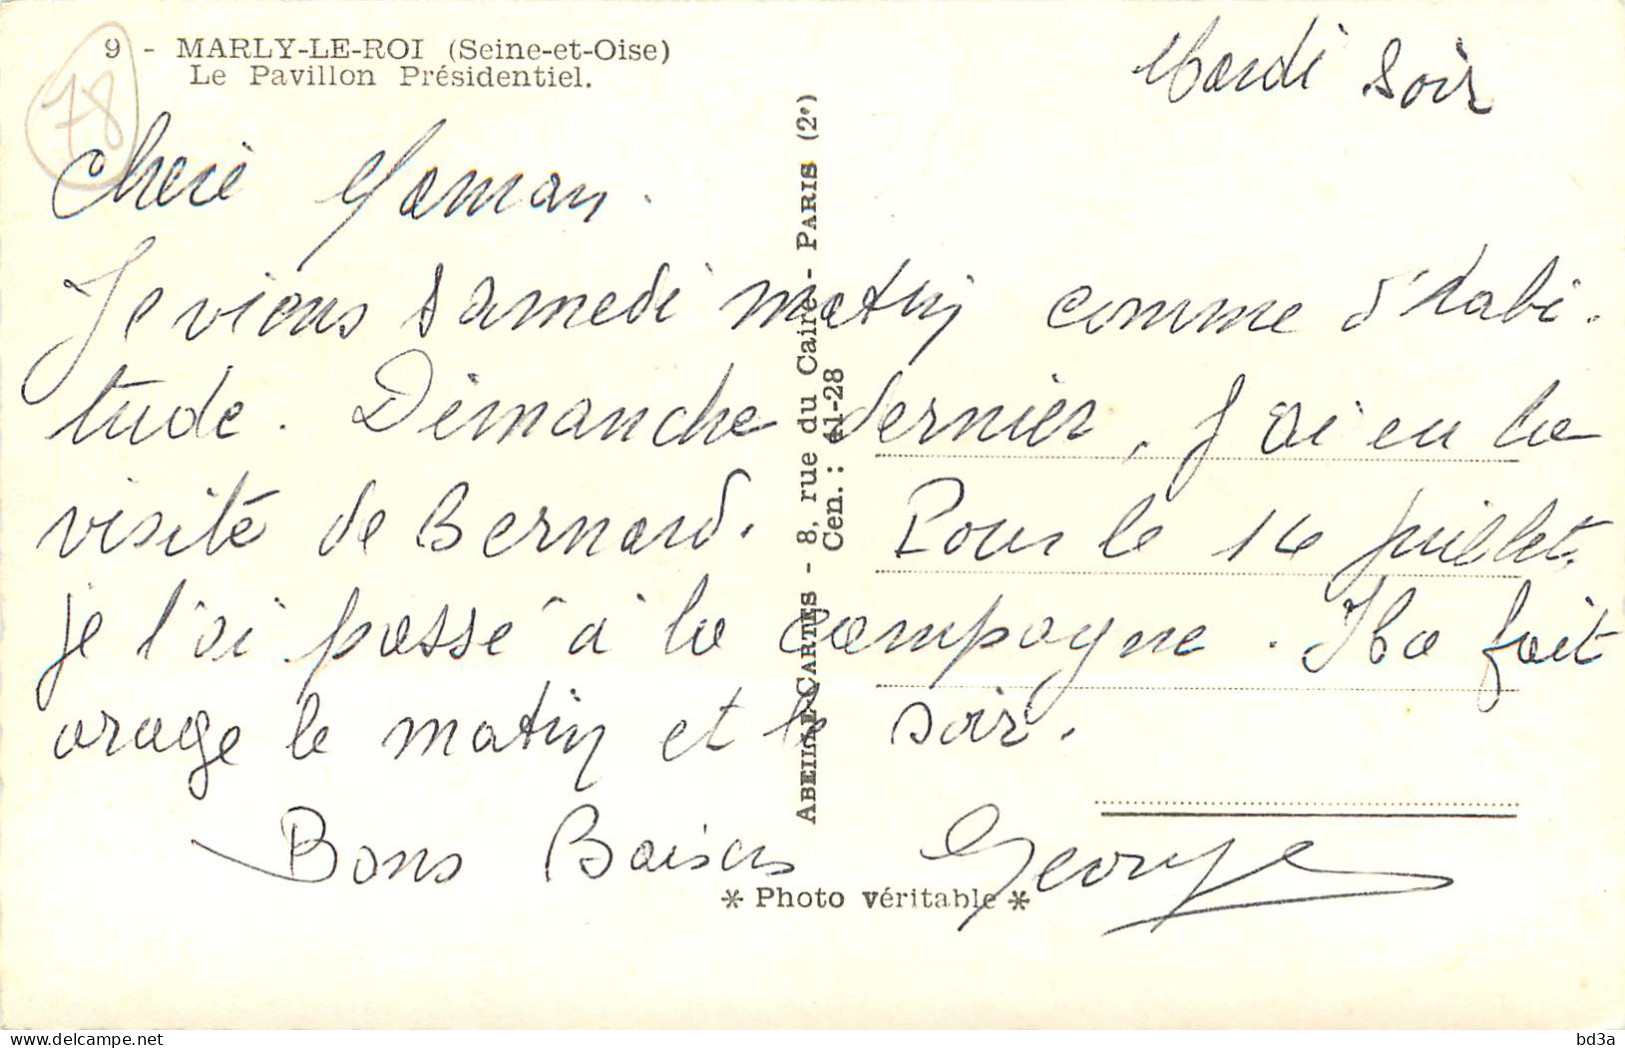 9 - MARLY-LE-ROI (Seine-et-Oise)
Le Pavillon Présidentiel.
78
Mardi Soir
Cherie Maman.
Je viens Samedi matin comme d'habi-
tude. Dimanche dernier, J'ai eu la
visite de Bernard. Pour le 14 juillet,
je l'ai passé à la campagne. Il a fait
orage le matin et le soir.
Bons Baisers George
ABEILLE-CARTES - 8, rue du Caire - PARIS (2e)
Cen. : 41-28
* Photo véritable *
bd3a